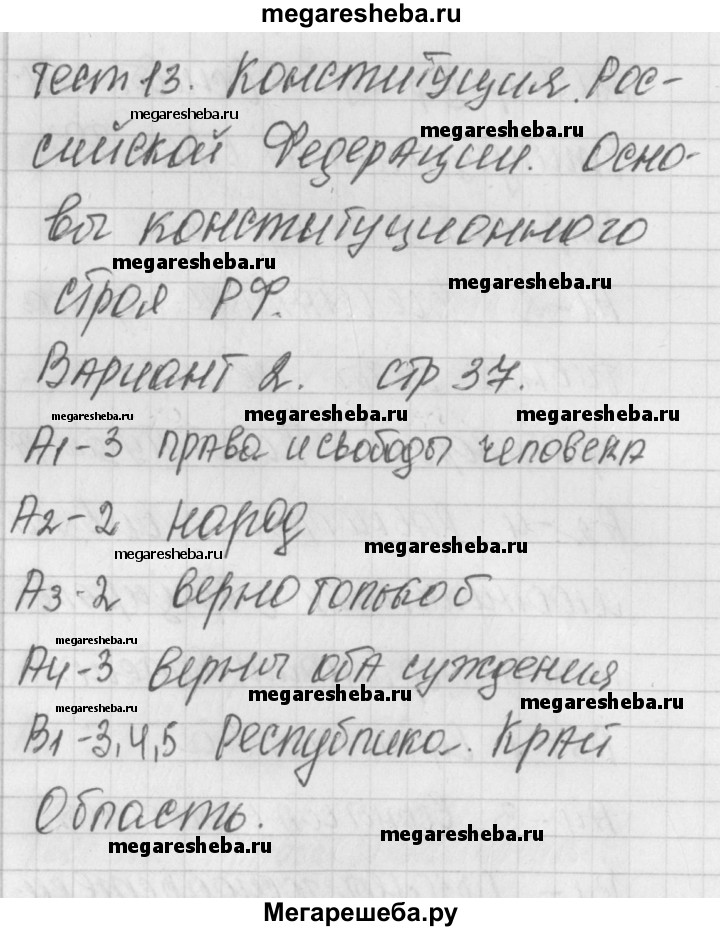 megaresheba.ru
тест 13. Конституция Рос-
megaresheba.ru
megaresheba.ru
сийской Федерации. Осно-
вы конституционного
megaresheba.ru
megaresheba.ru
строя РФ.
Вариант 2. стр 37.
megaresheba.ru
megaresheba.ru
megaresheba.ru
А1-3 права и свободы человека
А2-2 народ
megaresheba.ru
megaresheba.ru
А3-2 верно только б
megaresheba.ru
А4-3 верны оба суждения
megaresheba.ru
megaresheba.ru
megaresheba.ru
В1-3,4,5 Республика. Край
Область.
megaresheba.ru
megaresheba.ru
Мегарешеба.ру